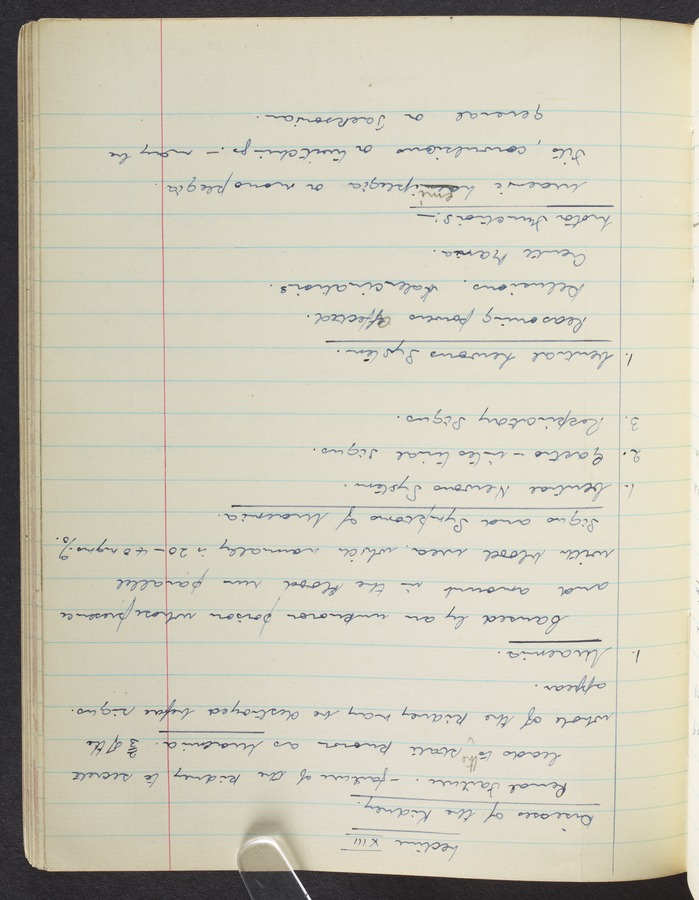 Lecture XIII
Diseases of the Kidney.
Renal Failure. - failure of the kidney to secrete
leads to the state known as Uraemia. of the
whole of the kidney may be destroyed before signs
appear.
1. Uraemia.
Caused by an unknown poison whose presence
and amount in the blood run parallel
with blood urea, which normally is 20-40 mgms%.
Signs and Symptoms of Uraemia.
1. Central Nervous System.
2. Gastro-intestinal signs.
3. Respiratory Signs.
1. Central Nervous System.
Reasoning powers affected.
Delusions. Halucinations.
Acute Mania.
Motor Functions:-
Uraemic hemiplegia or monoplegia.
Fits, convulsions or twitchings. - may be
general or Jacksonian.